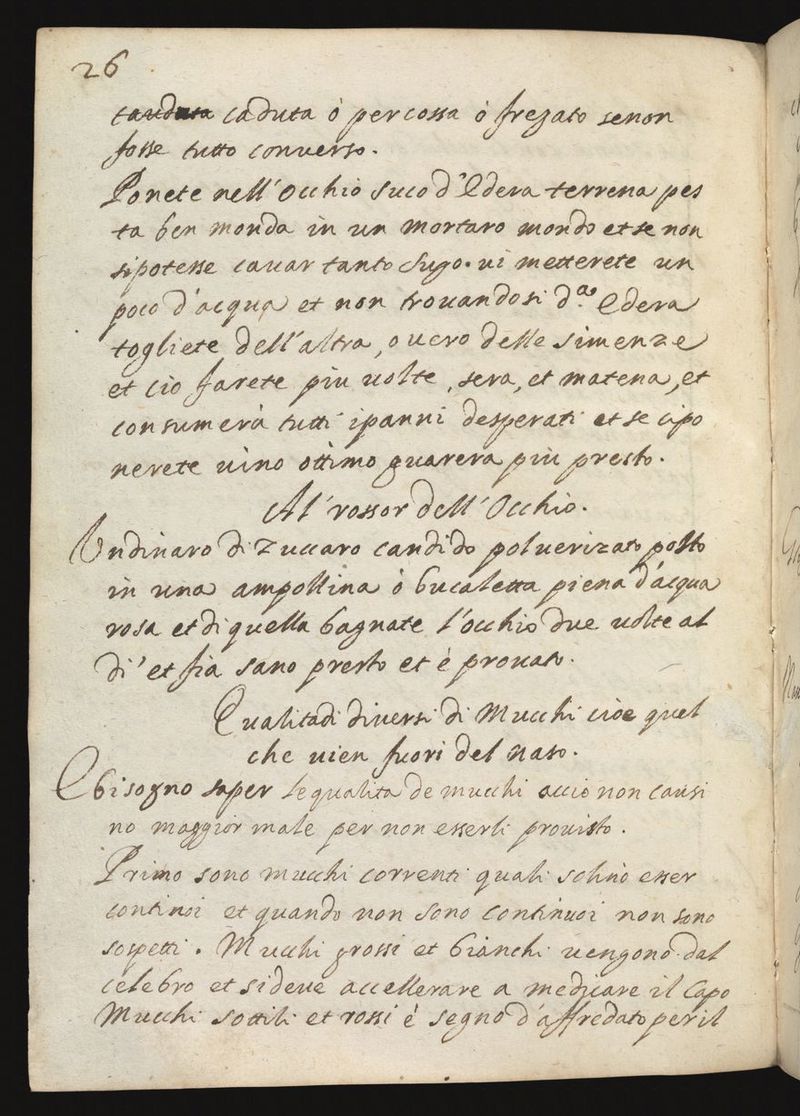 26
caduta caduta ò percossa ò fregato se non
fosse tutto converso.
Ponete nell'Occhio suco d'Edera terrena pes
ta ben monda in un mortaro mondo et se non
si potesse cavar tanto sugo. vi metterete un
poco d'acqua et non trovandosi d.ª Edera
togliete dell'altra, overo delle simenze
et cio farete piu volte, sera, et matena, et
consumerà tutti i panni desperati et se ci po
nerete vino ottimo guarera più presto.
Al rossor dell'Occhio.
Un dinaro di Zuccaro candido polverizato posto
in una ampollina ò bucaletta piena d'acqua
rosa et di quella bagnate l'occhio due volte al
di' et fia sano presto et è provato.
Qualitadi diversi di Mucchi cioe quel
che vien fuori del naso.
E bisogno saper le qualita de mucchi accio non causi
no maggior male per non esserli provisto.
Primo sono mucchi correnti quali solino esser
continoi et quando non sono continuoi non sono
sospetti. Mucchi grossi et bianchi vengono dal
celebro et si deve accellerare a medicare il Capo
Mucchi sottili et rossi è segno d'affredato per il